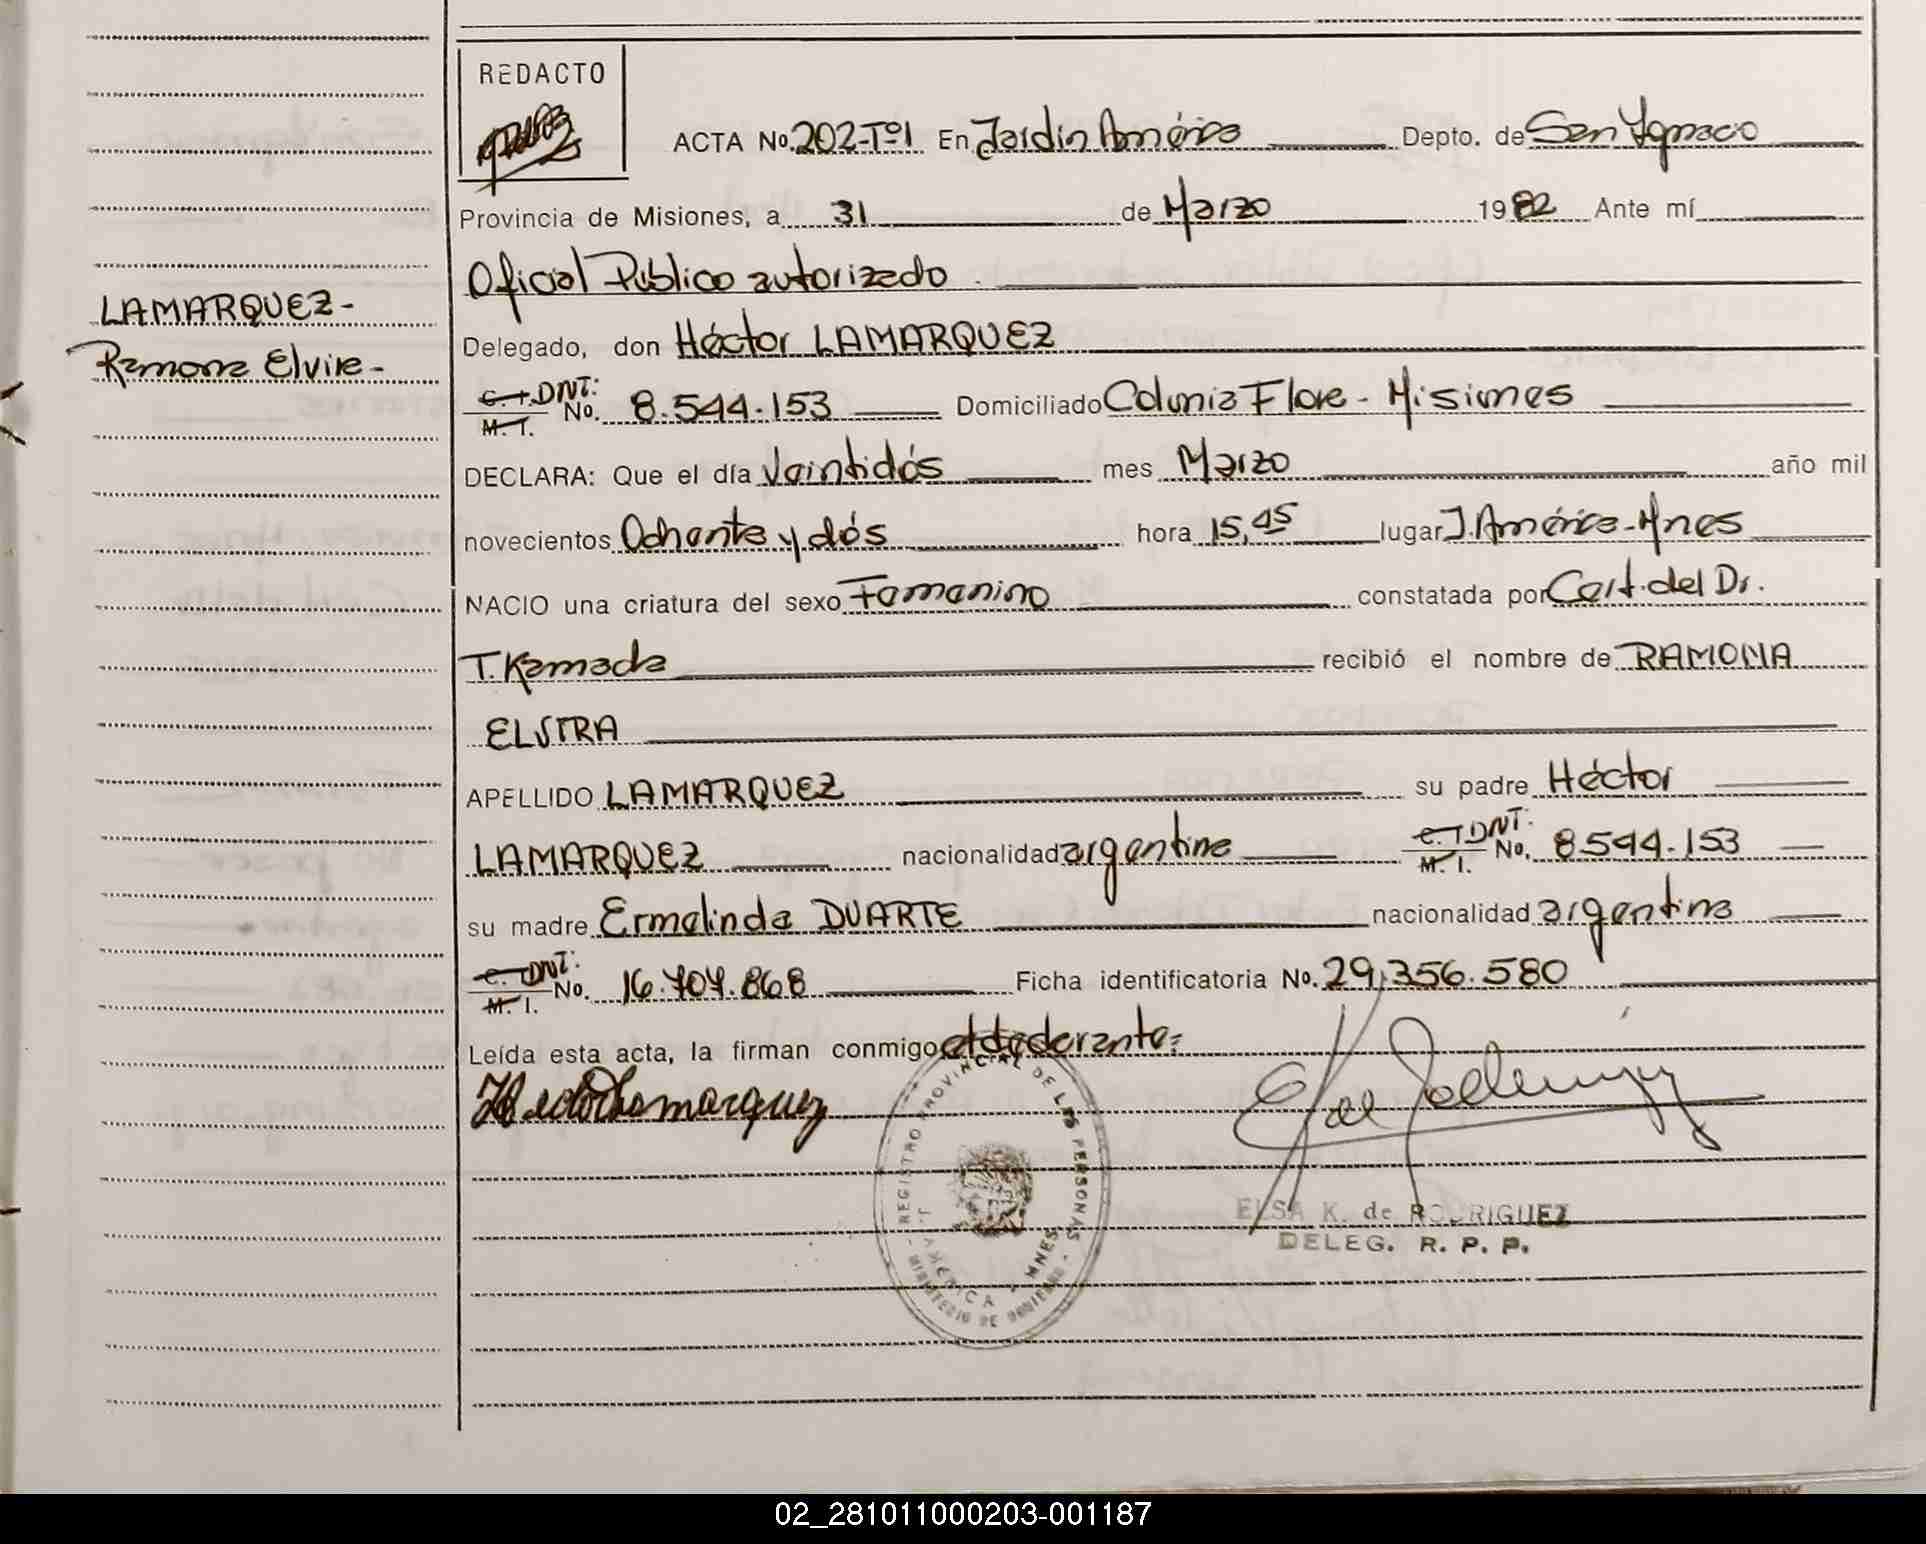 REDACTO
ACTA No. 202-Tº1 En Jardín América Depto. de San Ygnacio
Provincia de Misiones, a 31 de Marzo 1982 Ante mí
Oficial Público autorizado
LAMARQUEZ-
Delegado, don Héctor LAMARQUEZ
Ramona Elvira-
C. I. DNI:
M. I. No. 8.544.153 Domiciliado Colonia Flora - Misiones
DECLARA: Que el día Veintidós mes Marzo año mil
novecientos Ochenta y dós hora 15,45 lugar J. América-Mnes
NACIO una criatura del sexo Femenino constatada por Cert. del Dr.
T. Kamada recibió el nombre de RAMONA
ELVIRA
APELLIDO LAMARQUEZ su padre Héctor
LAMARQUEZ nacionalidad argentina C. I. DNI: M. I. No. 8.544.153
su madre Ermelinda DUARTE nacionalidad argentina
C. I. DNI: M. I. No. 16.707.868 Ficha identificatoria No. 29.356.580
Leída esta acta, la firman conmigo el declarante:
Hector Lamarquez
REGISTRO PROVINCIAL DE LAS PERSONAS
J. AMERICA MNES
MINISTERIO DE GOBIERNO
ELSA K. de RODRIGUEZ
DELEG. R. P. P.
02_281011000203-001187